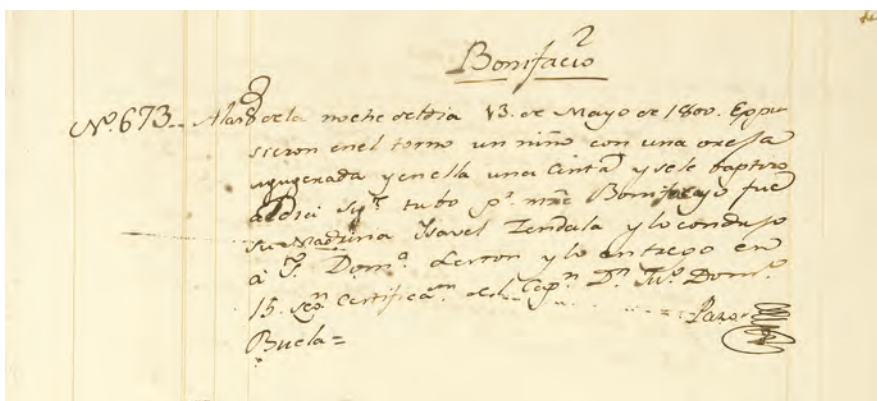 Bonifacio
Nº. 673.. Alas 8 de la noche del dia 13. de Mayo de 1800. Expu
sieron en el torno un niño con una oreja
agugerada y en ella una Cinta y se le baptizo
al dia sigte. tubo pr. nme Bonifacio fue
su Madrina Ysavel Zendala y lo condujo
à S. Domº. Lerron y lo entrego en
15. Certificaon. del Capn. Dn. Juº. Domº.
Buela=
Pazos